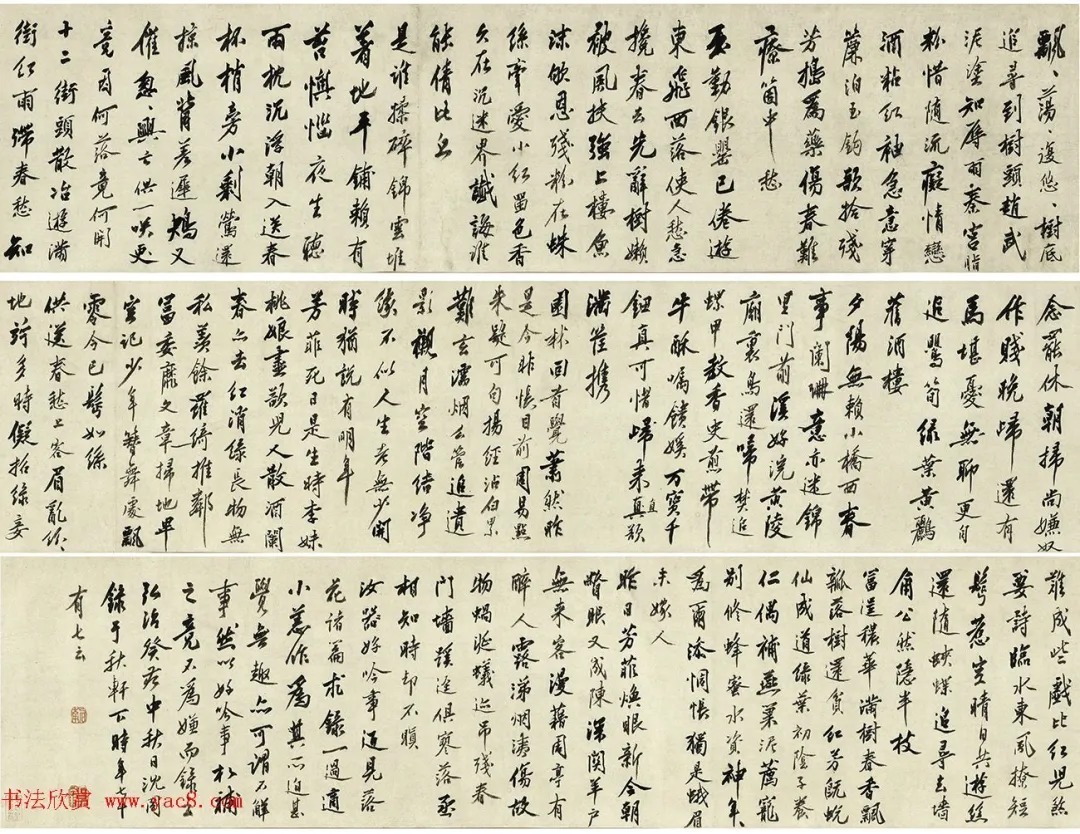 飄、蕩、復悠、樹底
追尋到樹頭趙武
泥塗知辱雨秦宮脂
粉惜隨流癡情戀
酒粘紅袖急意穿
簾泊玉鈎欲拾殘
芳搗爲藥傷春難
療箇中愁
玉勒銀罌已倦遊
東飛西落使人愁急
攙春去先辭樹嬾
被風扶強上樓魚
沫欲恩殘粉在蛛
絲牽愛小紅留色香
久在沉迷界懺誨誰
能倩比丘
是誰揉碎錦雲堆
著地平鋪賴有
苔懊惱夜生聽
雨枕沉浮朝入送春
杯梢旁小剩鶯還
掠風背差遲鴂又
催忽、興亡供一咲更
竟因何落竟何開
十二街頭散冶遊滿
街紅雨滯春愁知
念罷休朝掃尚嫌奴
作賤晚歸還有
馬堪憂無聊更自
追鶯筍綠葉黄鸝
舊酒樓
夕陽無賴小橋西春
事闌珊意亦迷錦
里門前溪好浣黄陵
廟裏鳥還啼焚追
螺甲教香史煎帶
牛酥囑饋媛万寳千
鈿真可惜歸來直欲
滿筐攜
園林回首覺蕭然昨
是今非悵目前周易點
來疑可句楊經沾白果
難玄濡烟么管追遺
影櫬月空階結淨
緣不似人生老無少開
時猶説有明年
芳菲死日是生時李妹
桃娘盡欲兒人散酒闌
春亦去紅消綠長物無
私羡餘羅綺推鄰
富委靡文章掃地卑
空記少年簪舞處飄
零今已髩如絲
供送春愁上客眉亂紛
地訝多時儗招綠妾
難成些戲比紅兒煞
要詩臨水東風撩短
髩惹空晴日共遊絲
還隨蛺蝶追尋去墻
角公然隱半枝
富逞穠華滿樹春香飄
瓢落樹還貧紅芳既蛻
仙成道綠葉初陰子養
仁偶補燕巢泥薦寵
别修蜂蜜水資神年、
爲爾添惆悵猶是蛾眉
未嫁人
昨日芳菲煥眼新今朝
瞥眼又成陳深關羊戶
無來客漫藉周亭有
醉人露涕烟洟傷故
物蝸涎蟻迹吊殘春
門墻蹊逕俱寥落丞
相知時却不瞋
汝器好吟事近見落
花詩篇求録一過適
小恙作爲其所迫甚
覺無趣亦可謂不解
事然以好吟事故補
之竟不爲嫌而録之
弘治癸亥中秋日沈周
録于秋軒下時年七十
有七云
书法欣赏 www.yac8.com